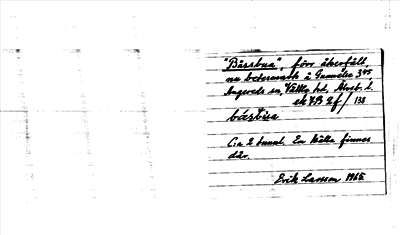 "Båssbua", förr åkerfält,
nu betesmark å Gunnilse 3⁴⁵,
Angereds sn, Vättle hd, Älvsb. l.
ek 7B 2f / 138
Ca 2 tunnl. En källa finnes
där.
Erik Larsson 1965.